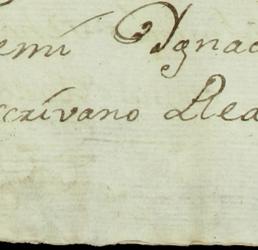 emí Ignac
scrívano Rea